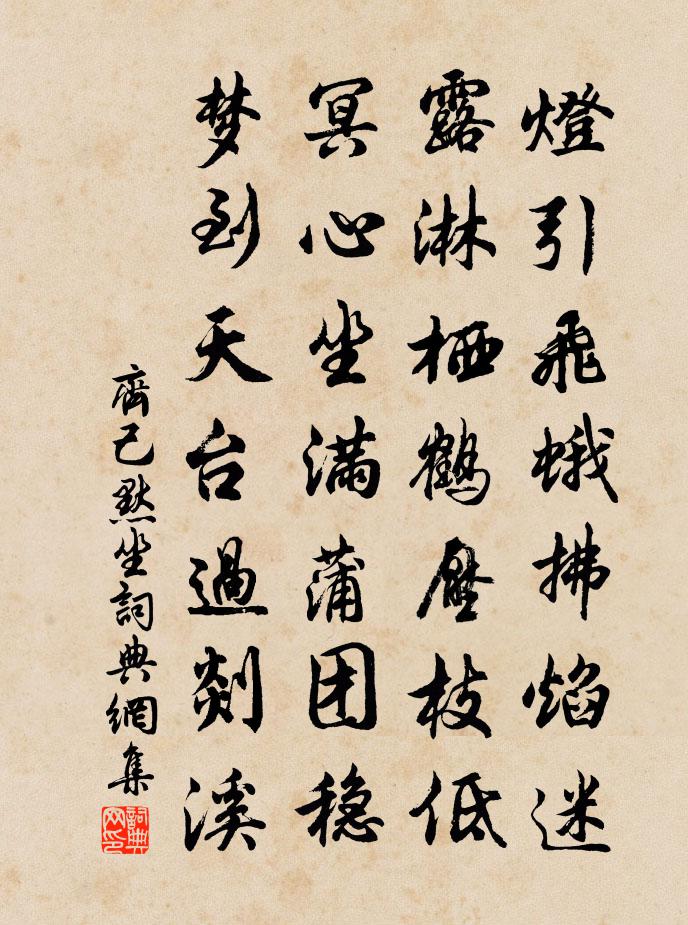 燈引飛蛾拂焰迷
露淋栖鶴壓枝低
冥心坐滿蒲团稳
梦到天台過剡溪
齊己默坐詞典網集
詞典網印